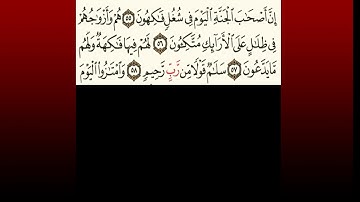 إِنَّ أَصْحَٰبَ ٱلْجَنَّةِ ٱلْيَوْمَ فِى شُغُلٍ فَٰكِهُونَ ٥٥ هُمْ وَأَزْوَٰجُهُمْ
فِى ظِلَٰلٍ عَلَى ٱلْأَرَآئِكِ مُتَّكِـُٔونَ ٥٦ لَهُمْ فِيهَا فَٰكِهَةٌ وَلَهُم
مَّا يَدَّعُونَ ٥٧ سَلَٰمٌ قَوْلًا مِّن رَّبٍّ رَّحِيمٍ ٥٨ وَٱمْتَٰزُوا۟ ٱلْيَوْمَ